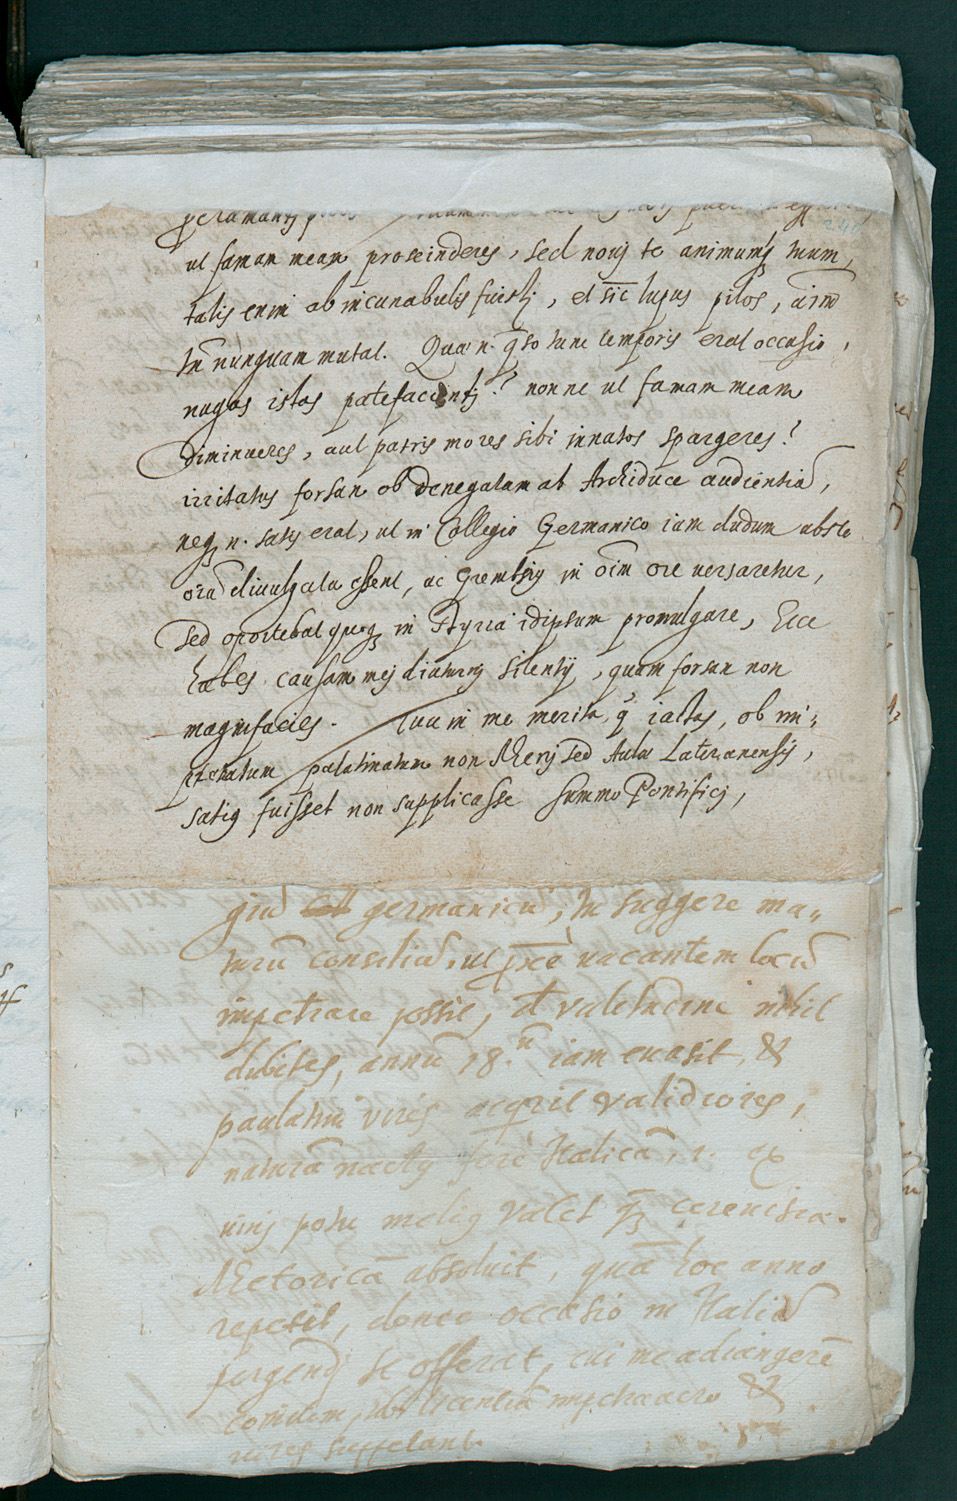 ut famam meam proscinderes, sed novj te animumq tuum,
talis enim ab incunabulis fuistj, et sic lupus pilos, animū
tn̄ nunquam mutat. Quæ n. q̄so tunc temporis erat occasio,
nugas istas patefaciendj? nonne ut famam meam
diminueres, aut patris mores tibi innatos spargeres?
irritatus forsan ob denegatam ab Archiduce audientiā,
neq n. satis erat, ut in Collegio Germanico iam dudum abs te
divulgata essent, ac in ōim ore versaretur,
sed oportebat quoq in Styria idipsum promulgare, Ecce
habes causam mej diuturnj silentij, quam forsan non
magnifacies. Tua in me merita, q̄ iactas, ob im-
petratum palatinatum non Rhenj sed Aulæ Lateranensis,
satius fuisset non supplicasse summo Pontificj,
giū germanicū, tu suggere ma-
turū consiliū, ut vacantem locū
impetrare possit, de valetudine nihil
dubites, annū 18.ū iam evasit, &
paulatim vires acqrit validiores,
naturā nactus ferè Italicā, i. ex
vinj potu melius valet q̄ cerevisiæ.
Rhetoricā absolvit, quā hoc anno
repetit, donec occasio in Italiā
pergendj se offerat, cui me adiungerē
comitem, licentiā &
vires suppetant.